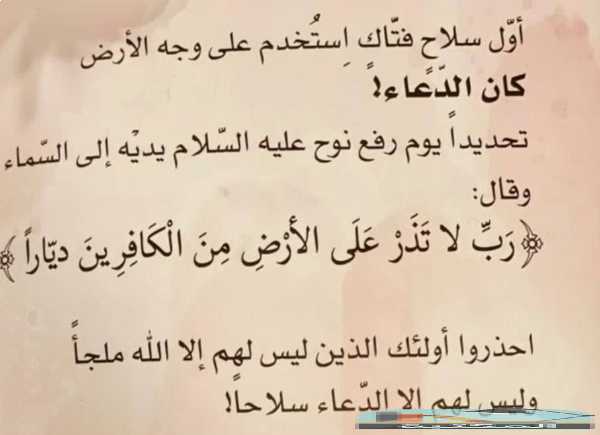 أوّل سلاحٍ فتّاكٍ اِستُخدم على وجه الأرض
كان الدّعاء!
تحديداً يوم رفع نوح عليه السّلام يديْه إلى السّماء
وقال:
﴿رَبِّ لا تَذَرْ عَلَى الأَرْضِ مِنَ الْكَافِرِينَ ديّاراً﴾
احذروا أولئك الذين ليس لهم إلا الله ملجأً
وليس لهم إلا الدّعاء سلاحاً!